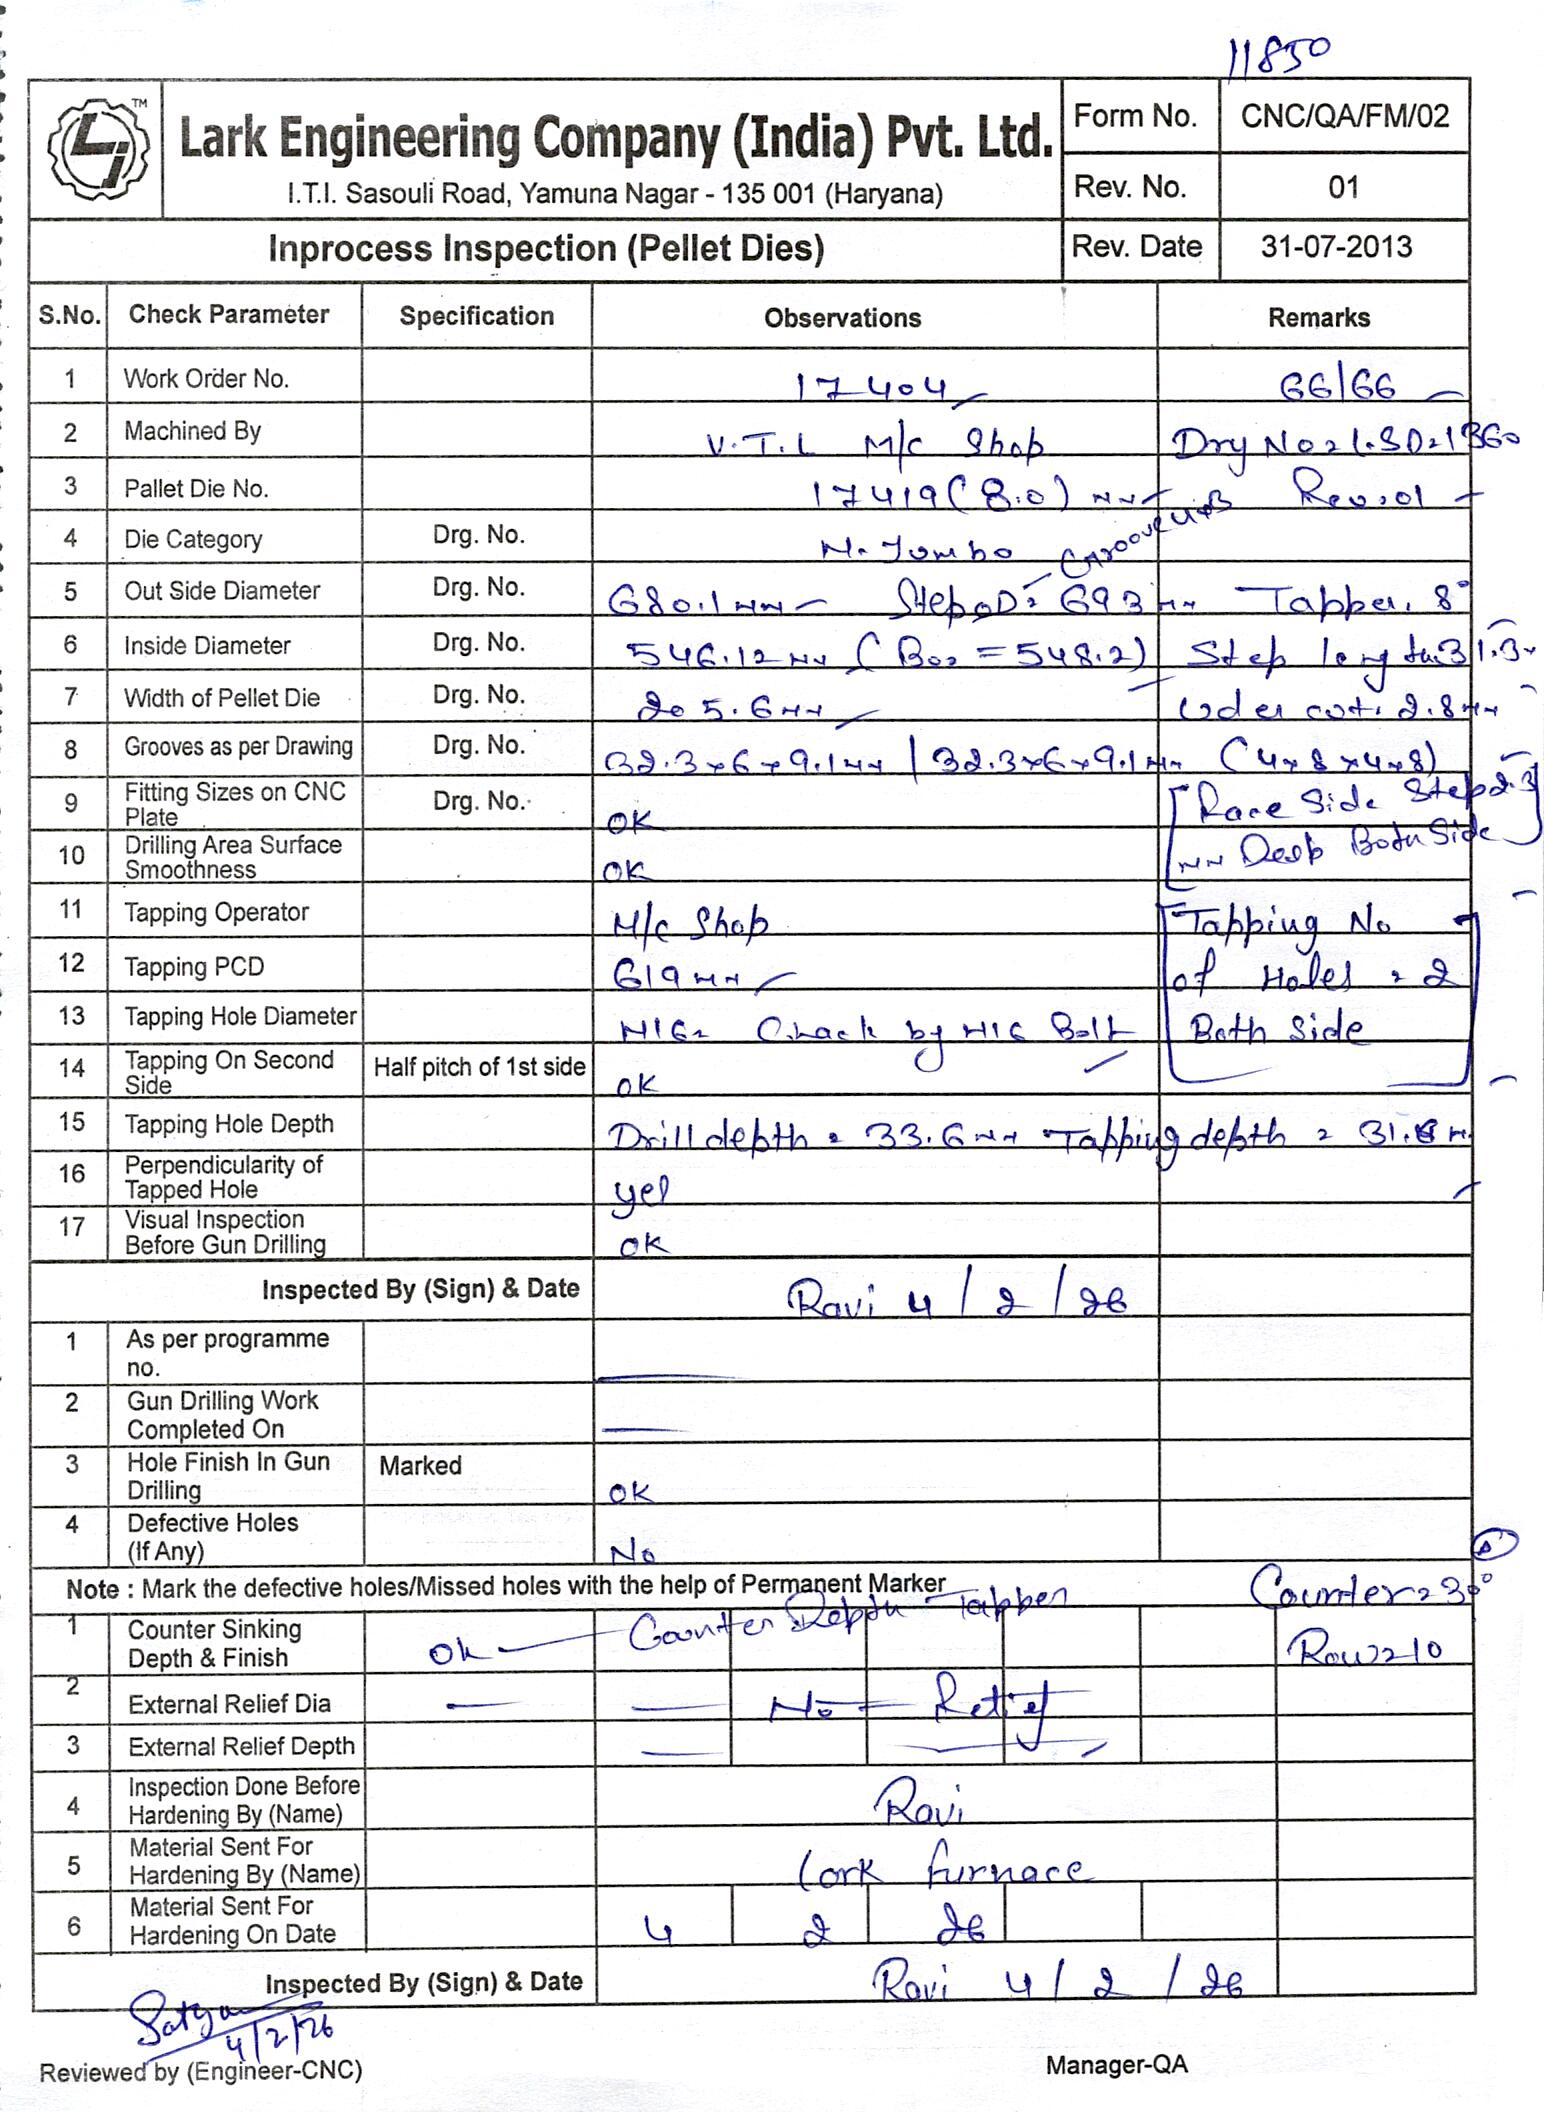 11850
TM
Lark Engineering Company (India) Pvt. Ltd.
I.T.I. Sasouli Road, Yamuna Nagar - 135 001 (Haryana)
Form No. CNC/QA/FM/02
Rev. No. 01
Inprocess Inspection (Pellet Dies)
Rev. Date 31-07-2013
S.No. Check Parameter Specification Observations Remarks
1 Work Order No. 17404 66/66
2 Machined By V.T.L M/c Shop
3 Pallet Die No. 17419 (8.0) mm
4 Die Category Drg. No. M. Jombo Groove
5 Out Side Diameter Drg. No. 680.1 mm Step OD = 693 mm Tapper. 8°
6 Inside Diameter Drg. No. 546.12 mm (Bos = 548.2) Step length 31.3
7 Width of Pellet Die Drg. No. 205.6 mm Uder cut. 2.8 mm
8 Grooves as per Drawing Drg. No. 32.3x6x9.1 mm / 32.3x6x9.1 mm (4x8x4x8)
9 Fitting Sizes on CNC Plate Drg. No. OK [Race Side Step 2.3
10 Drilling Area Surface Smoothness OK mm Deep Both Side]
11 Tapping Operator M/c Shop [Tapping No
12 Tapping PCD 619 mm of Holes = 2
13 Tapping Hole Diameter M16= Chack by M16 Bolt Both Side]
14 Tapping On Second Side Half pitch of 1st side OK
15 Tapping Hole Depth Drill depth = 33.6 mm Tapping depth =
16 Perpendicularity of Tapped Hole yes
17 Visual Inspection Before Gun Drilling OK
Inspected By (Sign) & Date Ravi 4/2/26
1 As per programme no. —
2 Gun Drilling Work Completed On —
3 Hole Finish In Gun Drilling Marked OK
4 Defective Holes (If Any) No
Note : Mark the defective holes/Missed holes with the help of Permanent Marker
Counter = 30°
1 Counter Sinking Depth & Finish Ok — Counter Depth Tapper Row = 10
2 External Relief Dia — — No Relief
3 External Relief Depth —
4 Inspection Done Before Hardening By (Name) Ravi
5 Material Sent For Hardening By (Name) Lark furnace
6 Material Sent For Hardening On Date 4 2 26
Inspected By (Sign) & Date Ravi 4/2/26
Satyam
4/2/26
Reviewed by (Engineer-CNC)
Manager-QA